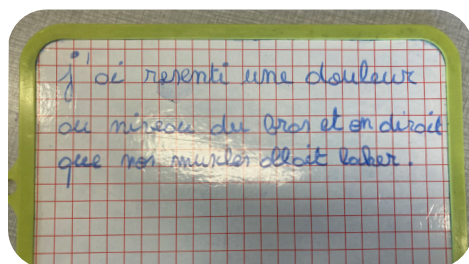 j'ai resenti une douleur
au niveau du bras et on dirait
que nos muscles allait laher.